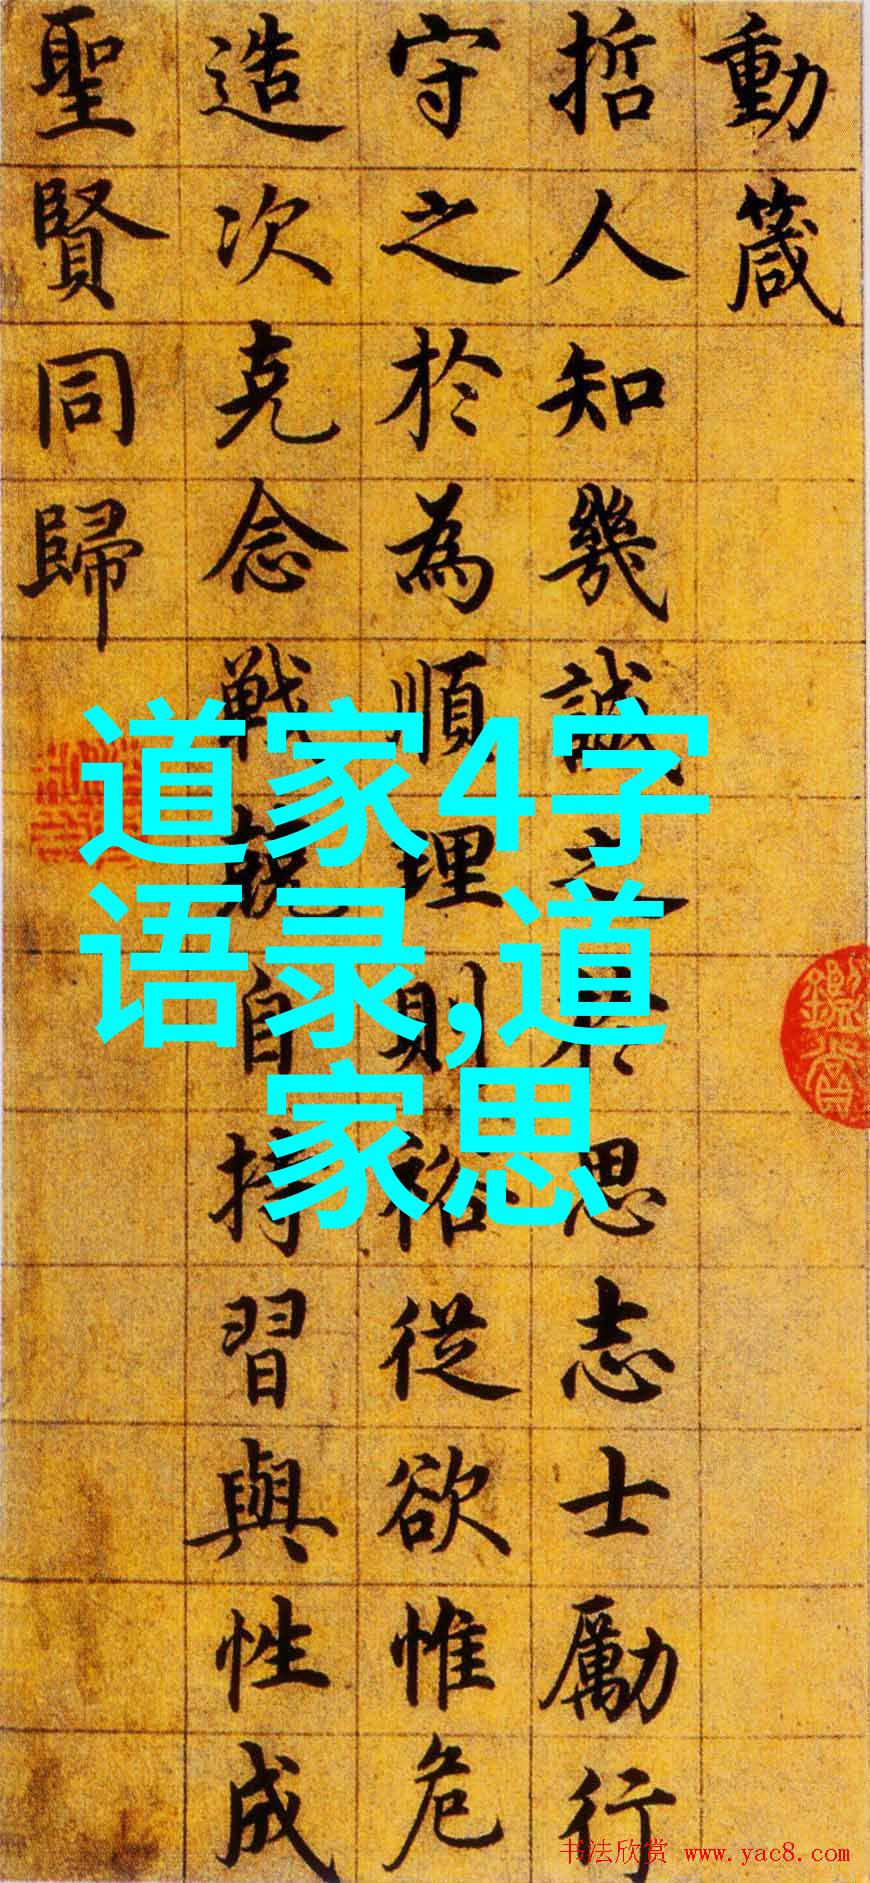 動箴
哲人知幾誠之於思志士勵行
守之於為順理則裕從欲惟危
造次克念戰兢自持習與性成
聖賢同歸
道家4字
语录,道
家思
书法欣赏 www.yac8.com